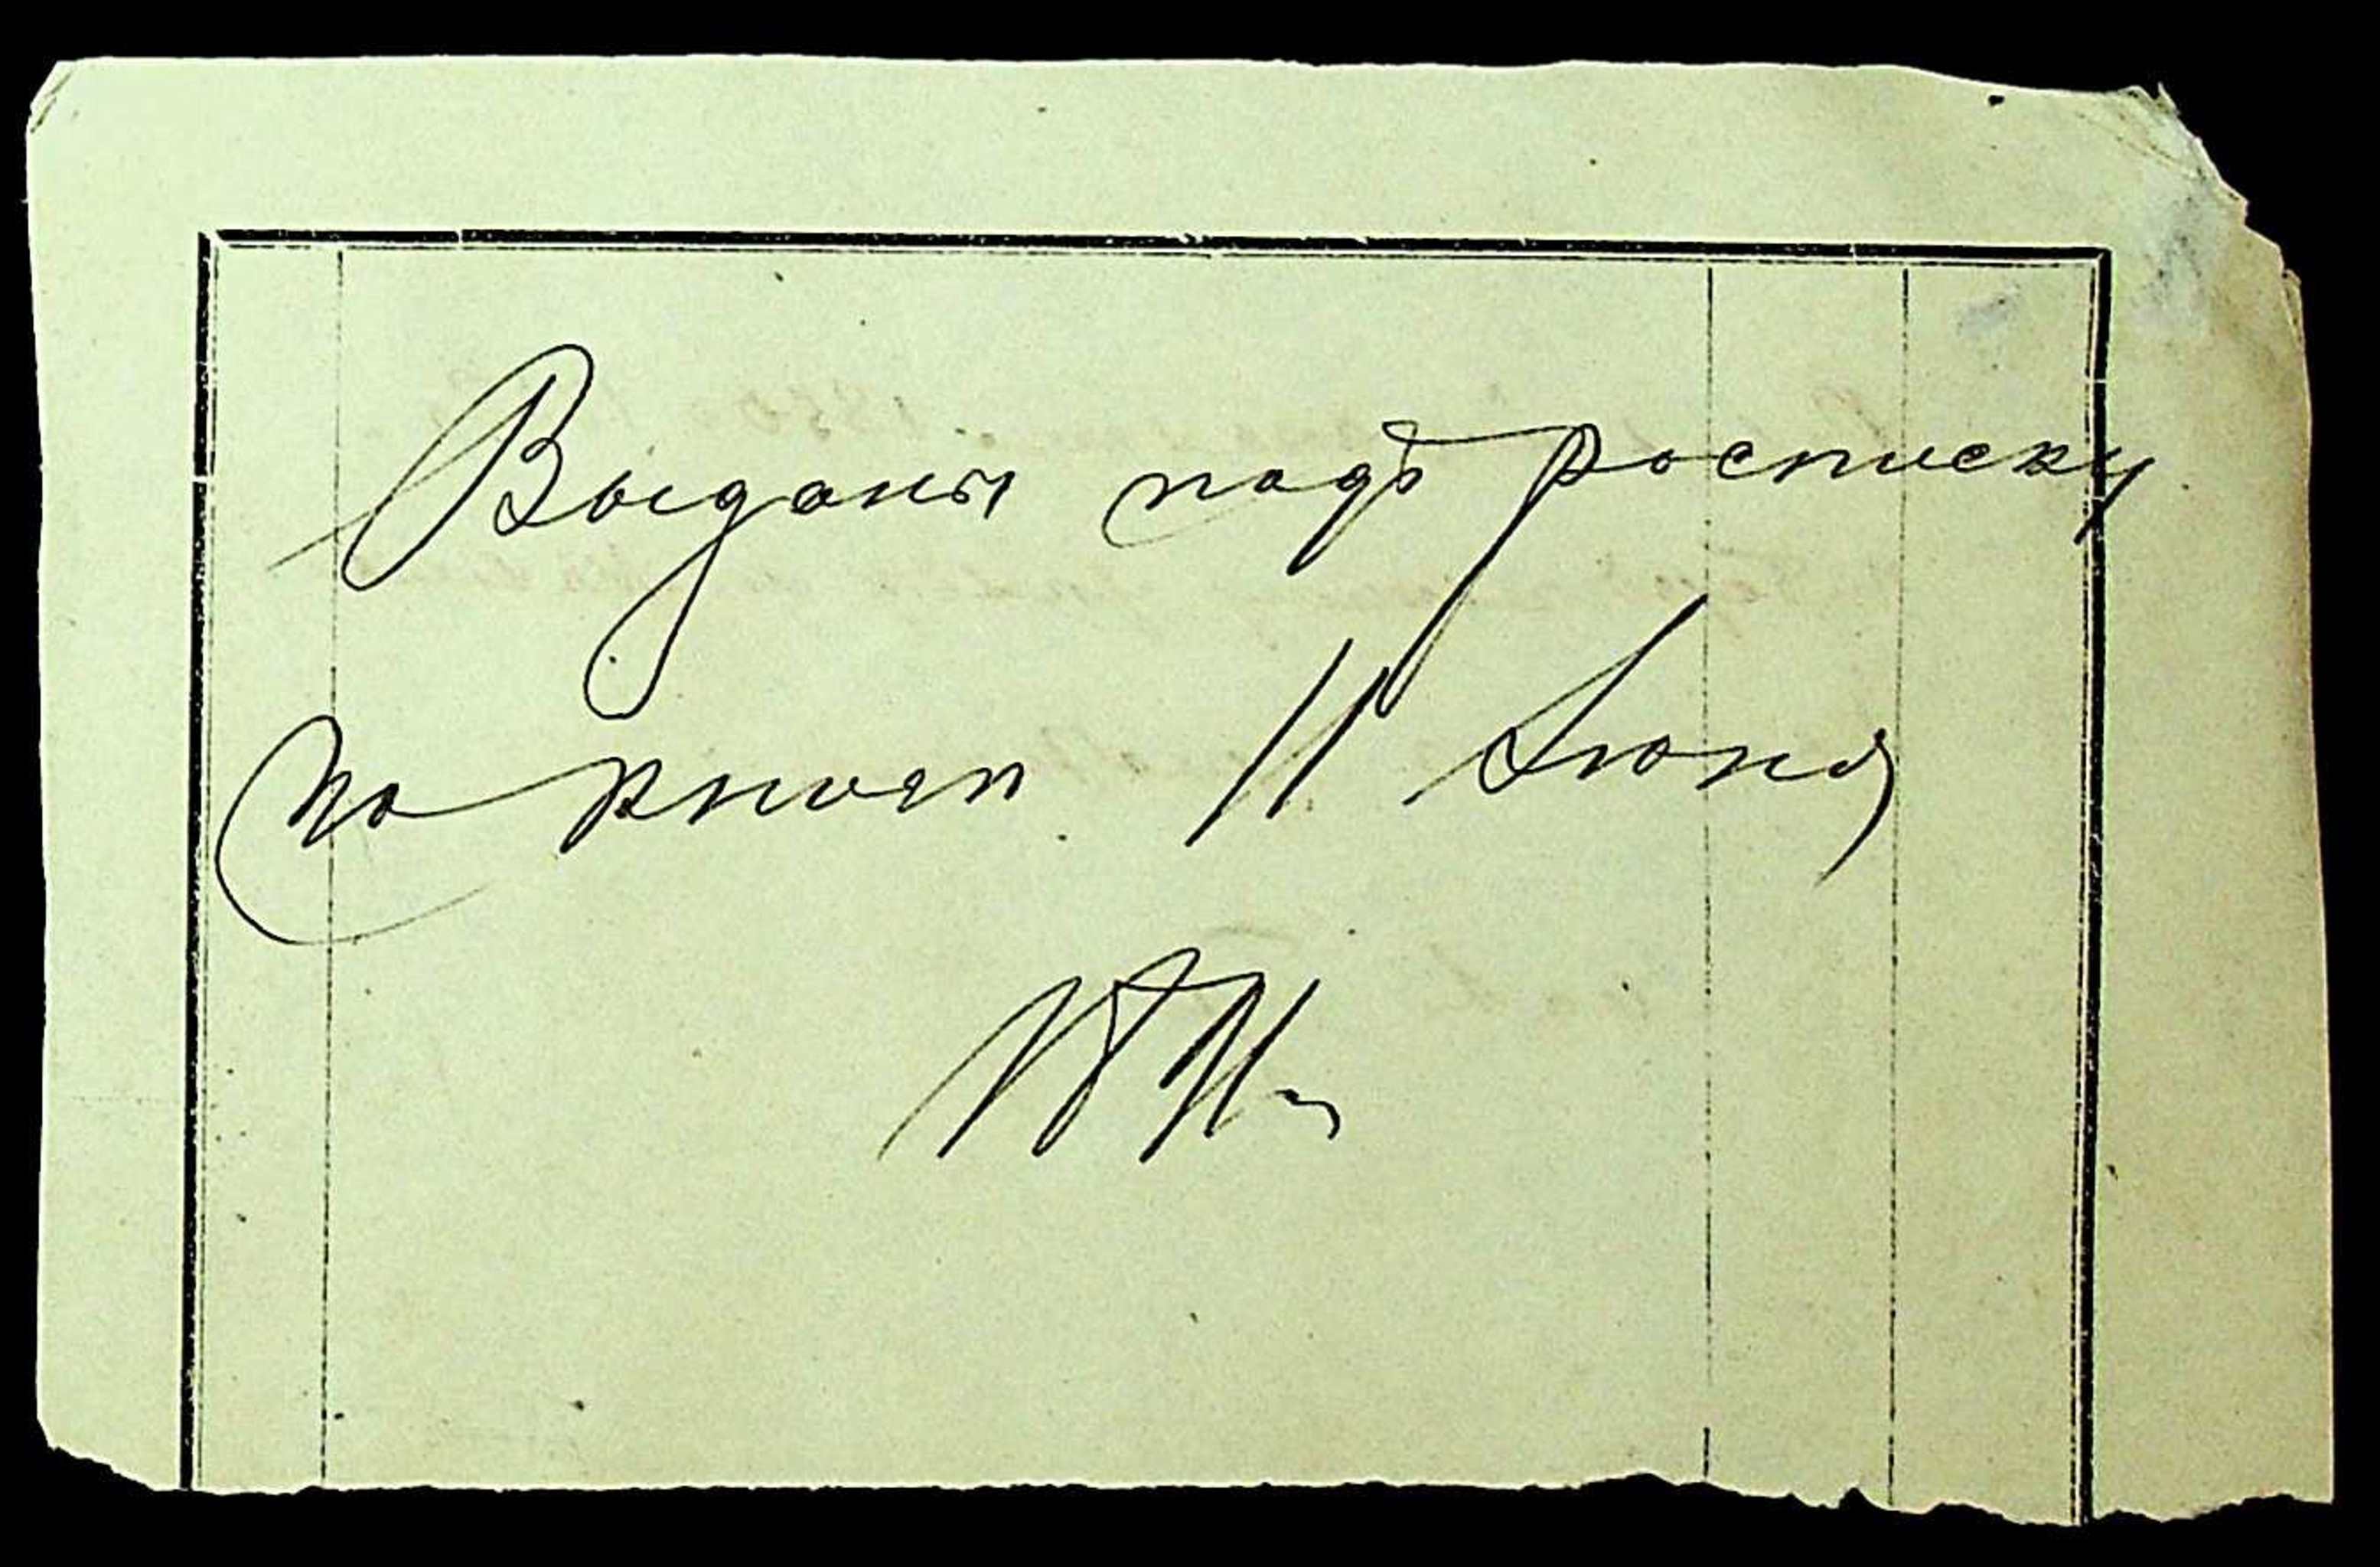 Выданы подъ росписку
по книгѣ 11 Июня